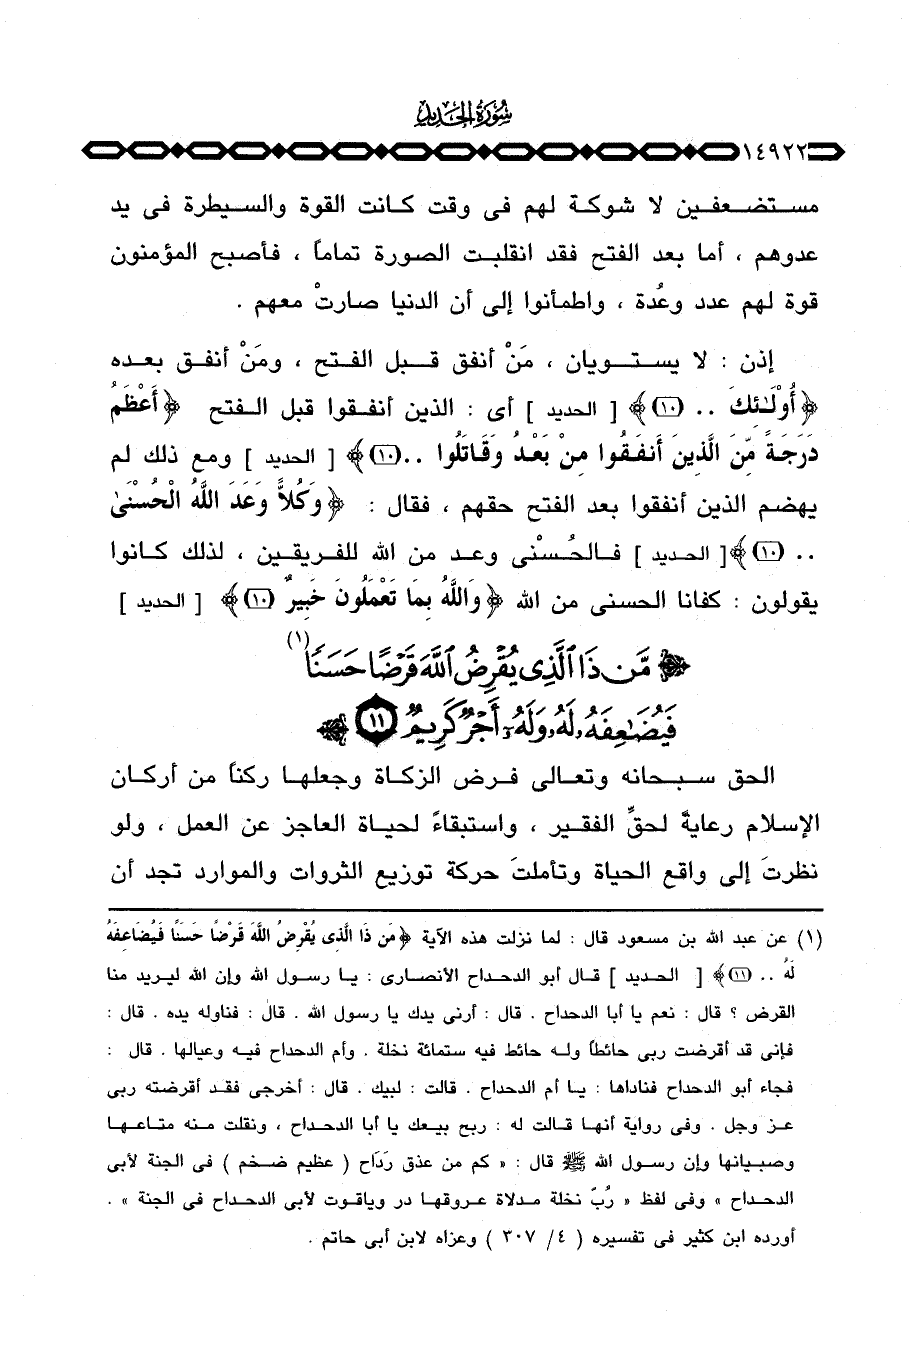 سورة الحديد
١٤٩٢٢
مستضعفين لا شوكة لهم فى وقت كانت القوة والسيطرة فى يد
عدوهم ، أما بعد الفتح فقد انقلبت الصورة تماماً ، فأصبح المؤمنون
قوة لهم عدد وعُدة ، واطمأنوا إلى أن الدنيا صارتْ معهم .
إذن : لا يستويان ، مَنْ أنفق قبل الفتح ، ومَنْ أنفق بعده
﴿أُوْلَـٰئِكَ .. (١٠)﴾ [ الحديد ] أى : الذين أنفقوا قبل الفتح ﴿أَعْظَمُ
دَرَجَةً مِّنَ الَّذِينَ أَنفَقُوا مِنْ بَعْدُ وَقَاتَلُوا ..(١٠)﴾ [ الحديد ] ومع ذلك لم
يهضم الذين أنفقوا بعد الفتح حقهم ، فقال : ﴿وَكُلاًّ وَعَدَ اللَّهُ الْحُسْنَىٰ
.. (١٠)﴾[ الحديد ] فالحُسْنى وعد من الله للفريقين ، لذلك كانوا
يقولون : كفانا الحسنى من الله ﴿وَاللَّهُ بِمَا تَعْمَلُونَ خَبِيرٌ (١٠)﴾ [ الحديد ]
﴿ مَّن ذَا ٱلَّذِى يُقْرِضُ ٱللَّهَ قَرْضًا حَسَنًا (١)
فَيُضَـٰعِفَهُۥ لَهُۥ وَلَهُۥٓ أَجْرٌ كَرِيمٌ ١١ ﴾
الحق سبحانه وتعالى فرض الزكاة وجعلها ركناً من أركان
الإسلام رعايةً لحقِّ الفقير ، واستبقاءً لحياة العاجز عن العمل ، ولو
نظرتَ إلى واقع الحياة وتأملتَ حركة توزيع الثروات والموارد تجد أن
(١) عن عبد الله بن مسعود قال : لما نزلت هذه الآية ﴿مَن ذَا الَّذِى يُقْرِضُ اللَّهَ قَرْضًا حَسَنًا فَيُضَاعِفَهُ
لَهُ .. (١١)﴾ [ الحديد ] قال أبو الدحداح الأنصارى : يا رسول الله وإن الله ليريد منا
القرض ؟ قال : نعم يا أبا الدحداح . قال : أرنى يدك يا رسول الله . قال : فناوله يده . قال :
فإنى قد أقرضت ربى حائطاً وله حائط فيه ستمائة نخلة . وأم الدحداح فيه وعيالها . قال :
فجاء أبو الدحداح فناداها : يا أم الدحداح . قالت : لبيك . قال : أخرجى فقد أقرضته ربى
عز وجل . وفى رواية أنها قالت له : ربح بيعك يا أبا الدحداح ، ونقلت منه متاعها
وصبيانها وإن رسول الله ﷺ قال : « كم من عذق رَدَاح ( عظيم ضخم ) فى الجنة لأبى
الدحداح » وفى لفظ « رُبَّ نخلة مدلاة عروقها در وياقوت لأبى الدحداح فى الجنة » .
أورده ابن كثير فى تفسيره ( ٤/ ٣٠٧ ) وعزاه لابن أبى حاتم .